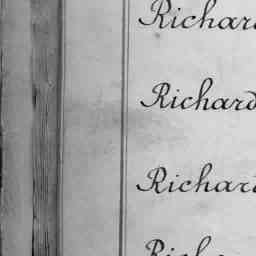 Richard
Richard
Richard
Rich